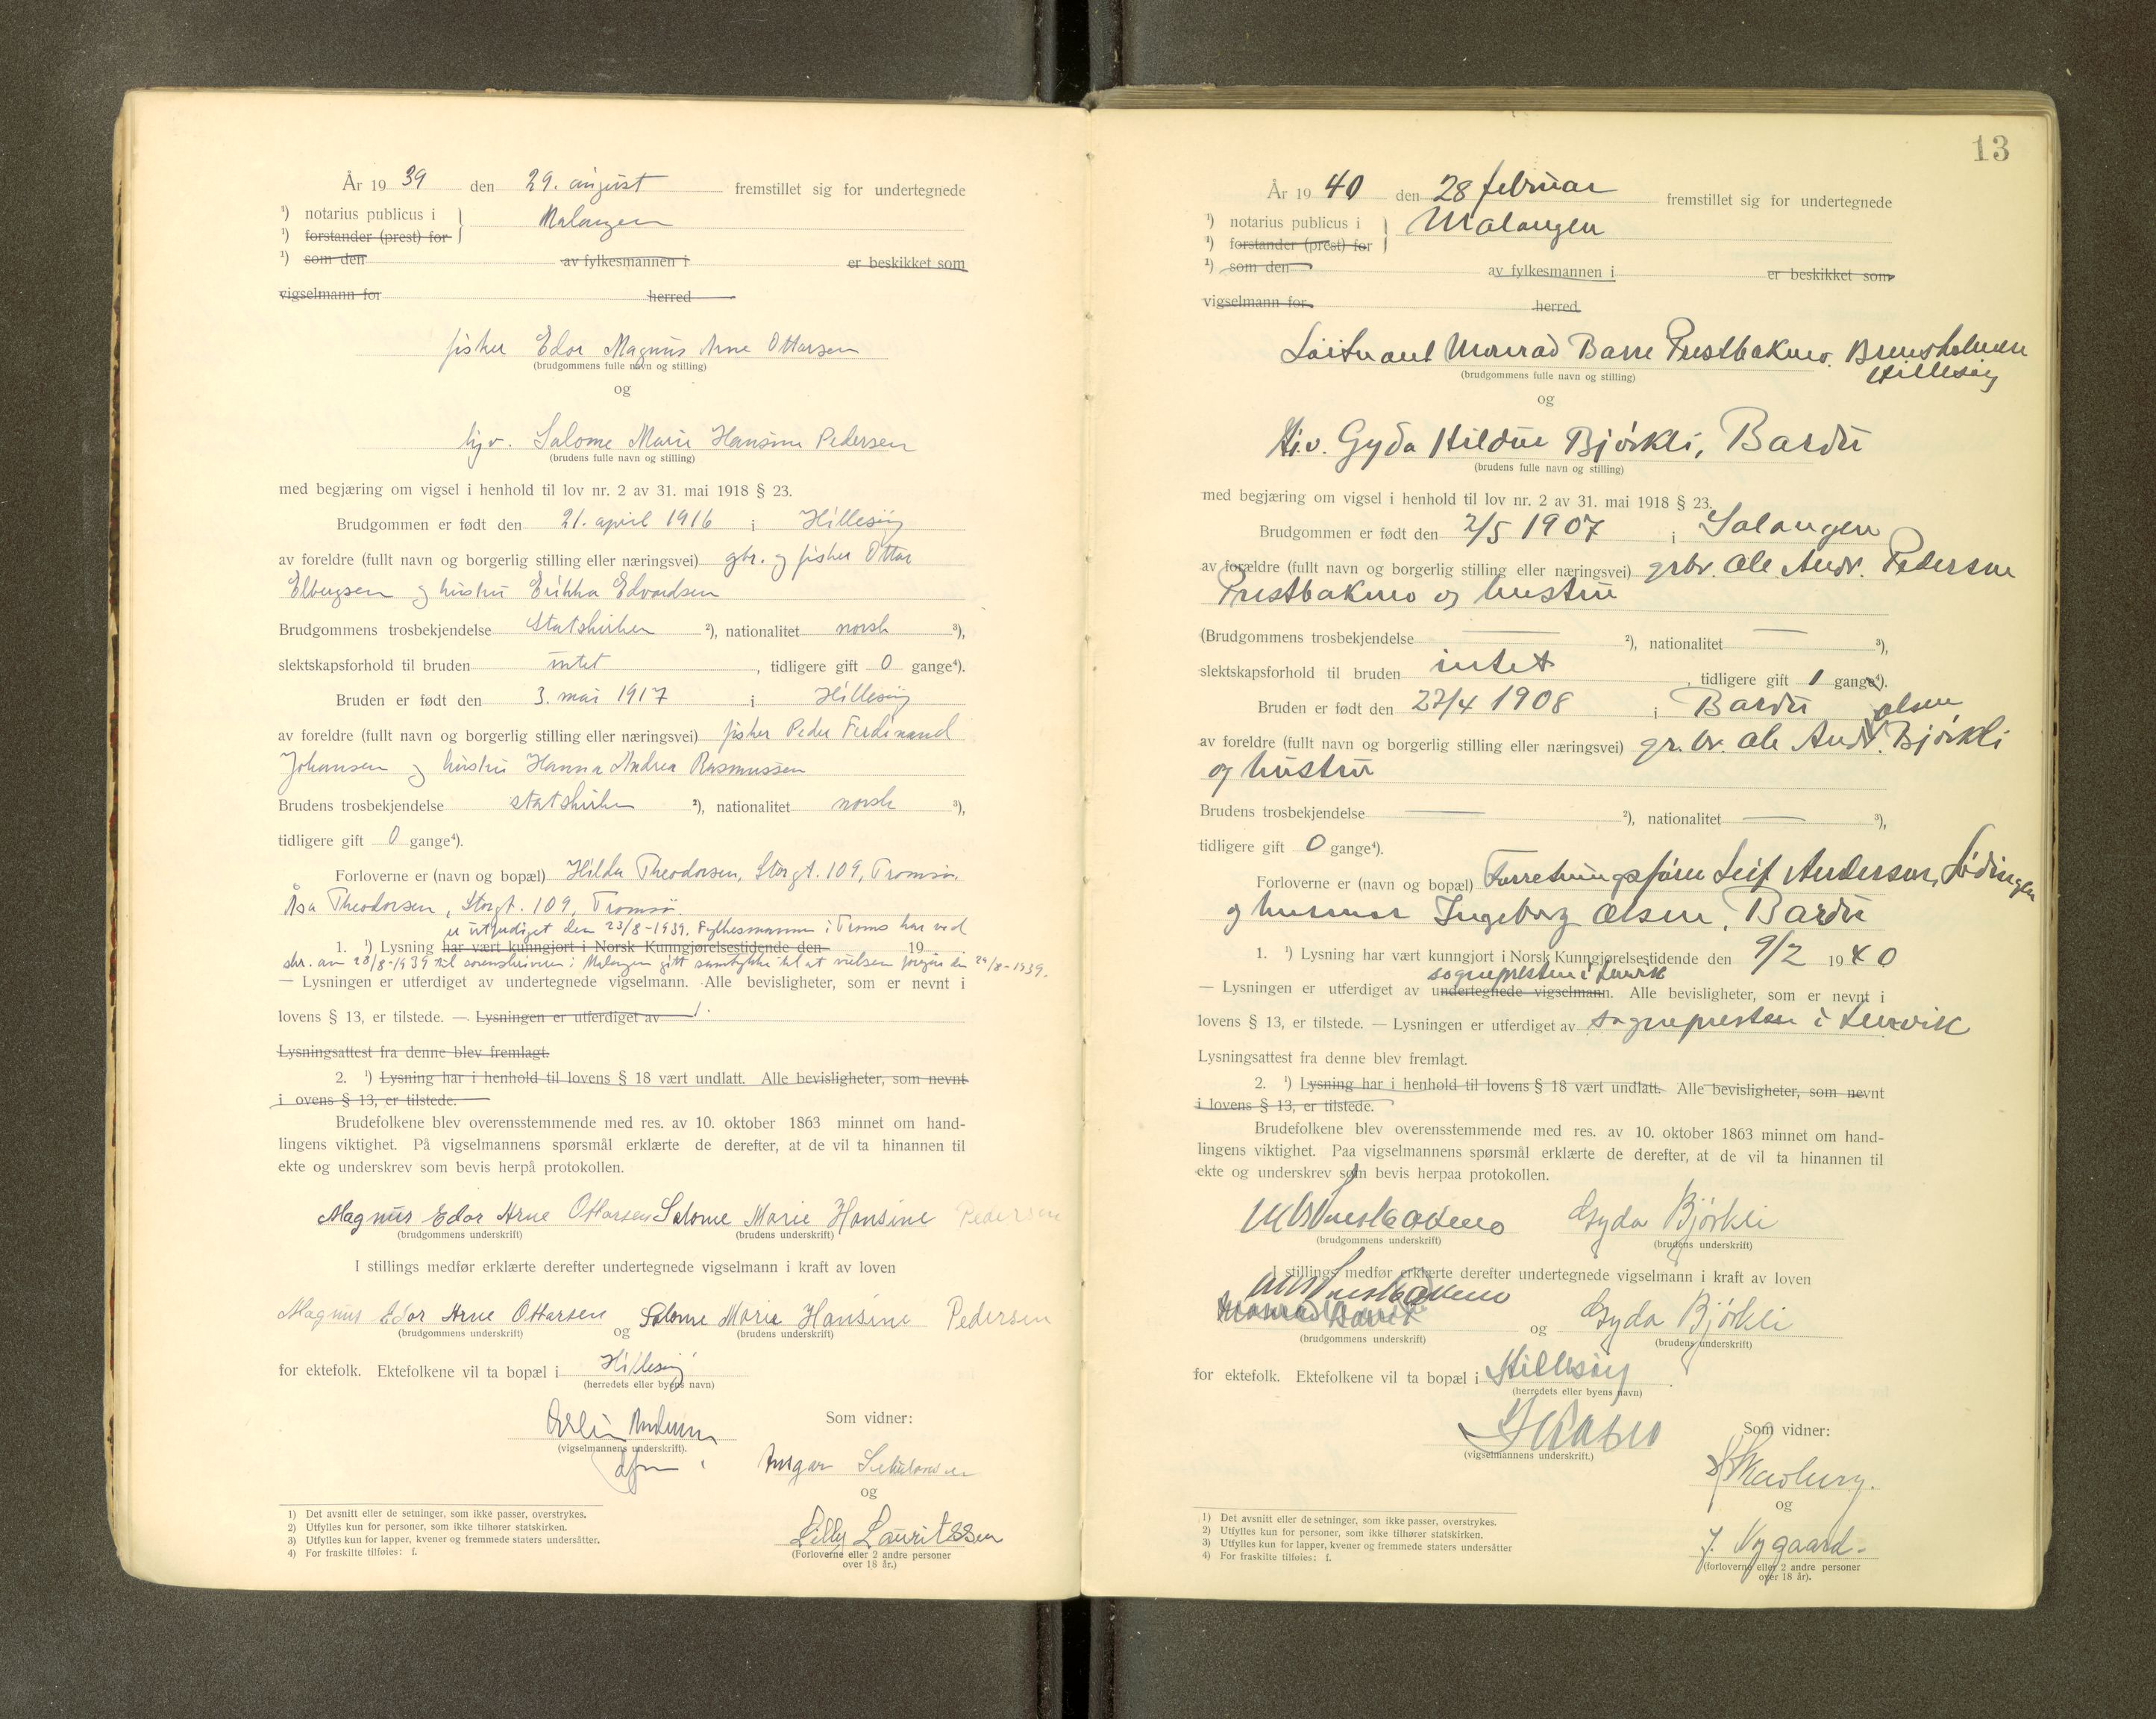 År 19 39 den 29. august fremstillet sig for undertegnede
¹) notarius publicus i Malangen
¹) forstander (prest) for
¹) som den av fylkesmannen i er beskikket som
vigselmann for herred
fisker Edor Magnus Arne Ottarsen
(brudgommens fulle navn og stilling)
og
hjv. Salome Marie Hansine Pedersen
(brudens fulle navn og stilling)
med begjæring om vigsel i henhold til lov nr. 2 av 31. mai 1918 § 23.
Brudgommen er født den 21. april 1916 i Hillesøy
av foreldre (fullt navn og borgerlig stilling eller næringsvei) gbr. og fisker Ottar
Elbergsen og hustru Erikka Edvardsen
Brudgommens trosbekjendelse Statskirken ²), nationalitet norsk ³),
slektskapsforhold til bruden intet , tidligere gift 0 gange⁴).
Bruden er født den 3. mai 1917 i Hillesøy
av foreldre (fullt navn og borgerlig stilling eller næringsvei) fisker Peder Ferdinand
Johansen og hustru Hanna Andrea Rasmussen
Brudens trosbekjendelse statskirken ²), nationalitet norsk ³),
tidligere gift 0 gange⁴).
Forloverne er (navn og bopæl) Hilda Theodorsen, Storgt. 109, Tromsø.
Åsa Theodorsen, Storgt. 109, Tromsø.
er utferdiget den 23/8-1939. Fylkesmannen i Troms har ved
1. ¹) Lysning har vært kunngjort i Norsk Kunngjørelsestidende den 19
skr. av 28/8-1939 til sorenskriveren i Malangen gitt samtykke til at vielsen foregår den 29/8-1939.
— Lysningen er utferdiget av undertegnede vigselmann. Alle bevisligheter, som er nevnt i
lovens § 13, er tilstede. — Lysningen er utferdiget av
Lysningsattest fra denne blev fremlagt.
2. ¹) Lysning har i henhold til lovens § 18 vært undlatt. Alle bevisligheter, som nevnt
i ovens § 13, er tilstede.
Brudefolkene blev overensstemmende med res. av 10. oktober 1863 minnet om hand-
lingens viktighet. På vigselmannens spørsmål erklærte de derefter, at de vil ta hinannen til
ekte og underskrev som bevis herpå protokollen.
Magnus Edor Arne Ottarsen Salome Marie Hansine Pedersen
(brudgommens underskrift) (brudens underskrift)
I stillings medfør erklærte derefter undertegnede vigselmann i kraft av loven
Magnus Edor Arne Ottarsen og Salome Marie Hansine Pedersen
(brudgommens underskrift) (brudens underskrift)
for ektefolk. Ektefolkene vil ta bopæl i Hillesøy
(herredets eller byens navn)
Som vidner:
(vigselmannens underskrift).
Ansgar
og
Lilly Lauritssen
(Forloverne eller 2 andre personer
over 18 år.)
1) Det avsnitt eller de setninger, som ikke passer, overstrykes.
2) Utfylles kun for personer, som ikke tilhører statskirken.
3) Utfylles kun for lapper, kvener og fremmede staters undersåtter.
4) For fraskilte tilføies: f.
13
År 19 40 den 28 februar fremstillet sig for undertegnede
¹) notarius publicus i Malangen
¹) forstander (prest) for
¹) som den av fylkesmannen i er beskikket som
vigselmann for herred
Løitnant Monrad Barre Prestbakmo. Brensholmen
Hillesøy
(brudgommens fulle navn og stilling)
og
Hv. Gyda Hildur Bjørkli, Bardu
(brudens fulle navn og stilling)
med begjæring om vigsel i henhold til lov nr. 2 av 31. mai 1918 § 23.
Brudgommen er født den 2/5 1907 i Salangen
av forældre (fullt navn og borgerlig stilling eller næringsvei) grbr. Ole Andr. Pedersen
Prestbakmo og hustru
(Brudgommens trosbekjendelse — ²), nationalitet — ³),
slektskapsforhold til bruden intet , tidligere gift 1 gange⁴).
Bruden er født den 27/4 1908 i Bardu
olsen
av foreldre (fullt navn og borgerlig stilling eller næringsvei) gr.br. Ole Andr. Bjørkli
og hustru
Brudens trosbekjendelse — ²), nationalitet — ³),
tidligere gift 0 gange⁴).
Forloverne er (navn og bopæl) Forretningsfører Leif Andersen, Lødingen
og husmor Ingeborg Olsen, Bardu
1. ¹) Lysning har vært kunngjort i Norsk Kunngjørelsestidende den 9/2 19 40
sognepresten i Lenvik
— Lysningen er utferdiget av undertegnede vigselmann. Alle bevisligheter, som er nevnt i
lovens § 13, er tilstede. — Lysningen er utferdiget av sognepresten i Lenvik
Lysningsattest fra denne blev fremlagt.
2. ¹) Lysning har i henhold til lovens § 18 vært undlatt. Alle bevisligheter, som nevnt
i lovens § 13, er tilstede.
Brudefolkene blev overensstemmende med res. av 10. oktober 1863 minnet om hand-
lingens viktighet. Paa vigselmannens spørsmål erklærte de derefter, at de vil ta hinannen til
ekte og underskrev som bevis herpaa protokollen.
MBPrestbakmo Gyda Bjørkli
(brudgommens underskrift) (brudens underskrift)
I stillings medfør erklærte derefter undertegnede vigselmann i kraft av loven
MBPrestbakmo
og Gyda Bjørkli
(brudgommens underskrift) (brudens underskrift)
for ektefolk. Ektefolkene vil ta bopæl i Hillesøy
(herredets eller byens navn)
Som vidner:
(vigselmannens underskrift.)
og
J. Nygaard
(forloverne eller 2 andre personer
over 18 år).
1) Det avsnitt eller de setninger, som ikke passer, overstrykes.
2) Utfylles kun for personer, som ikke tilhører statskirken.
3) Utfylles kun for lapper, kvener og fremmede staters undersåtter
4) For fraskilte tilføies: f.